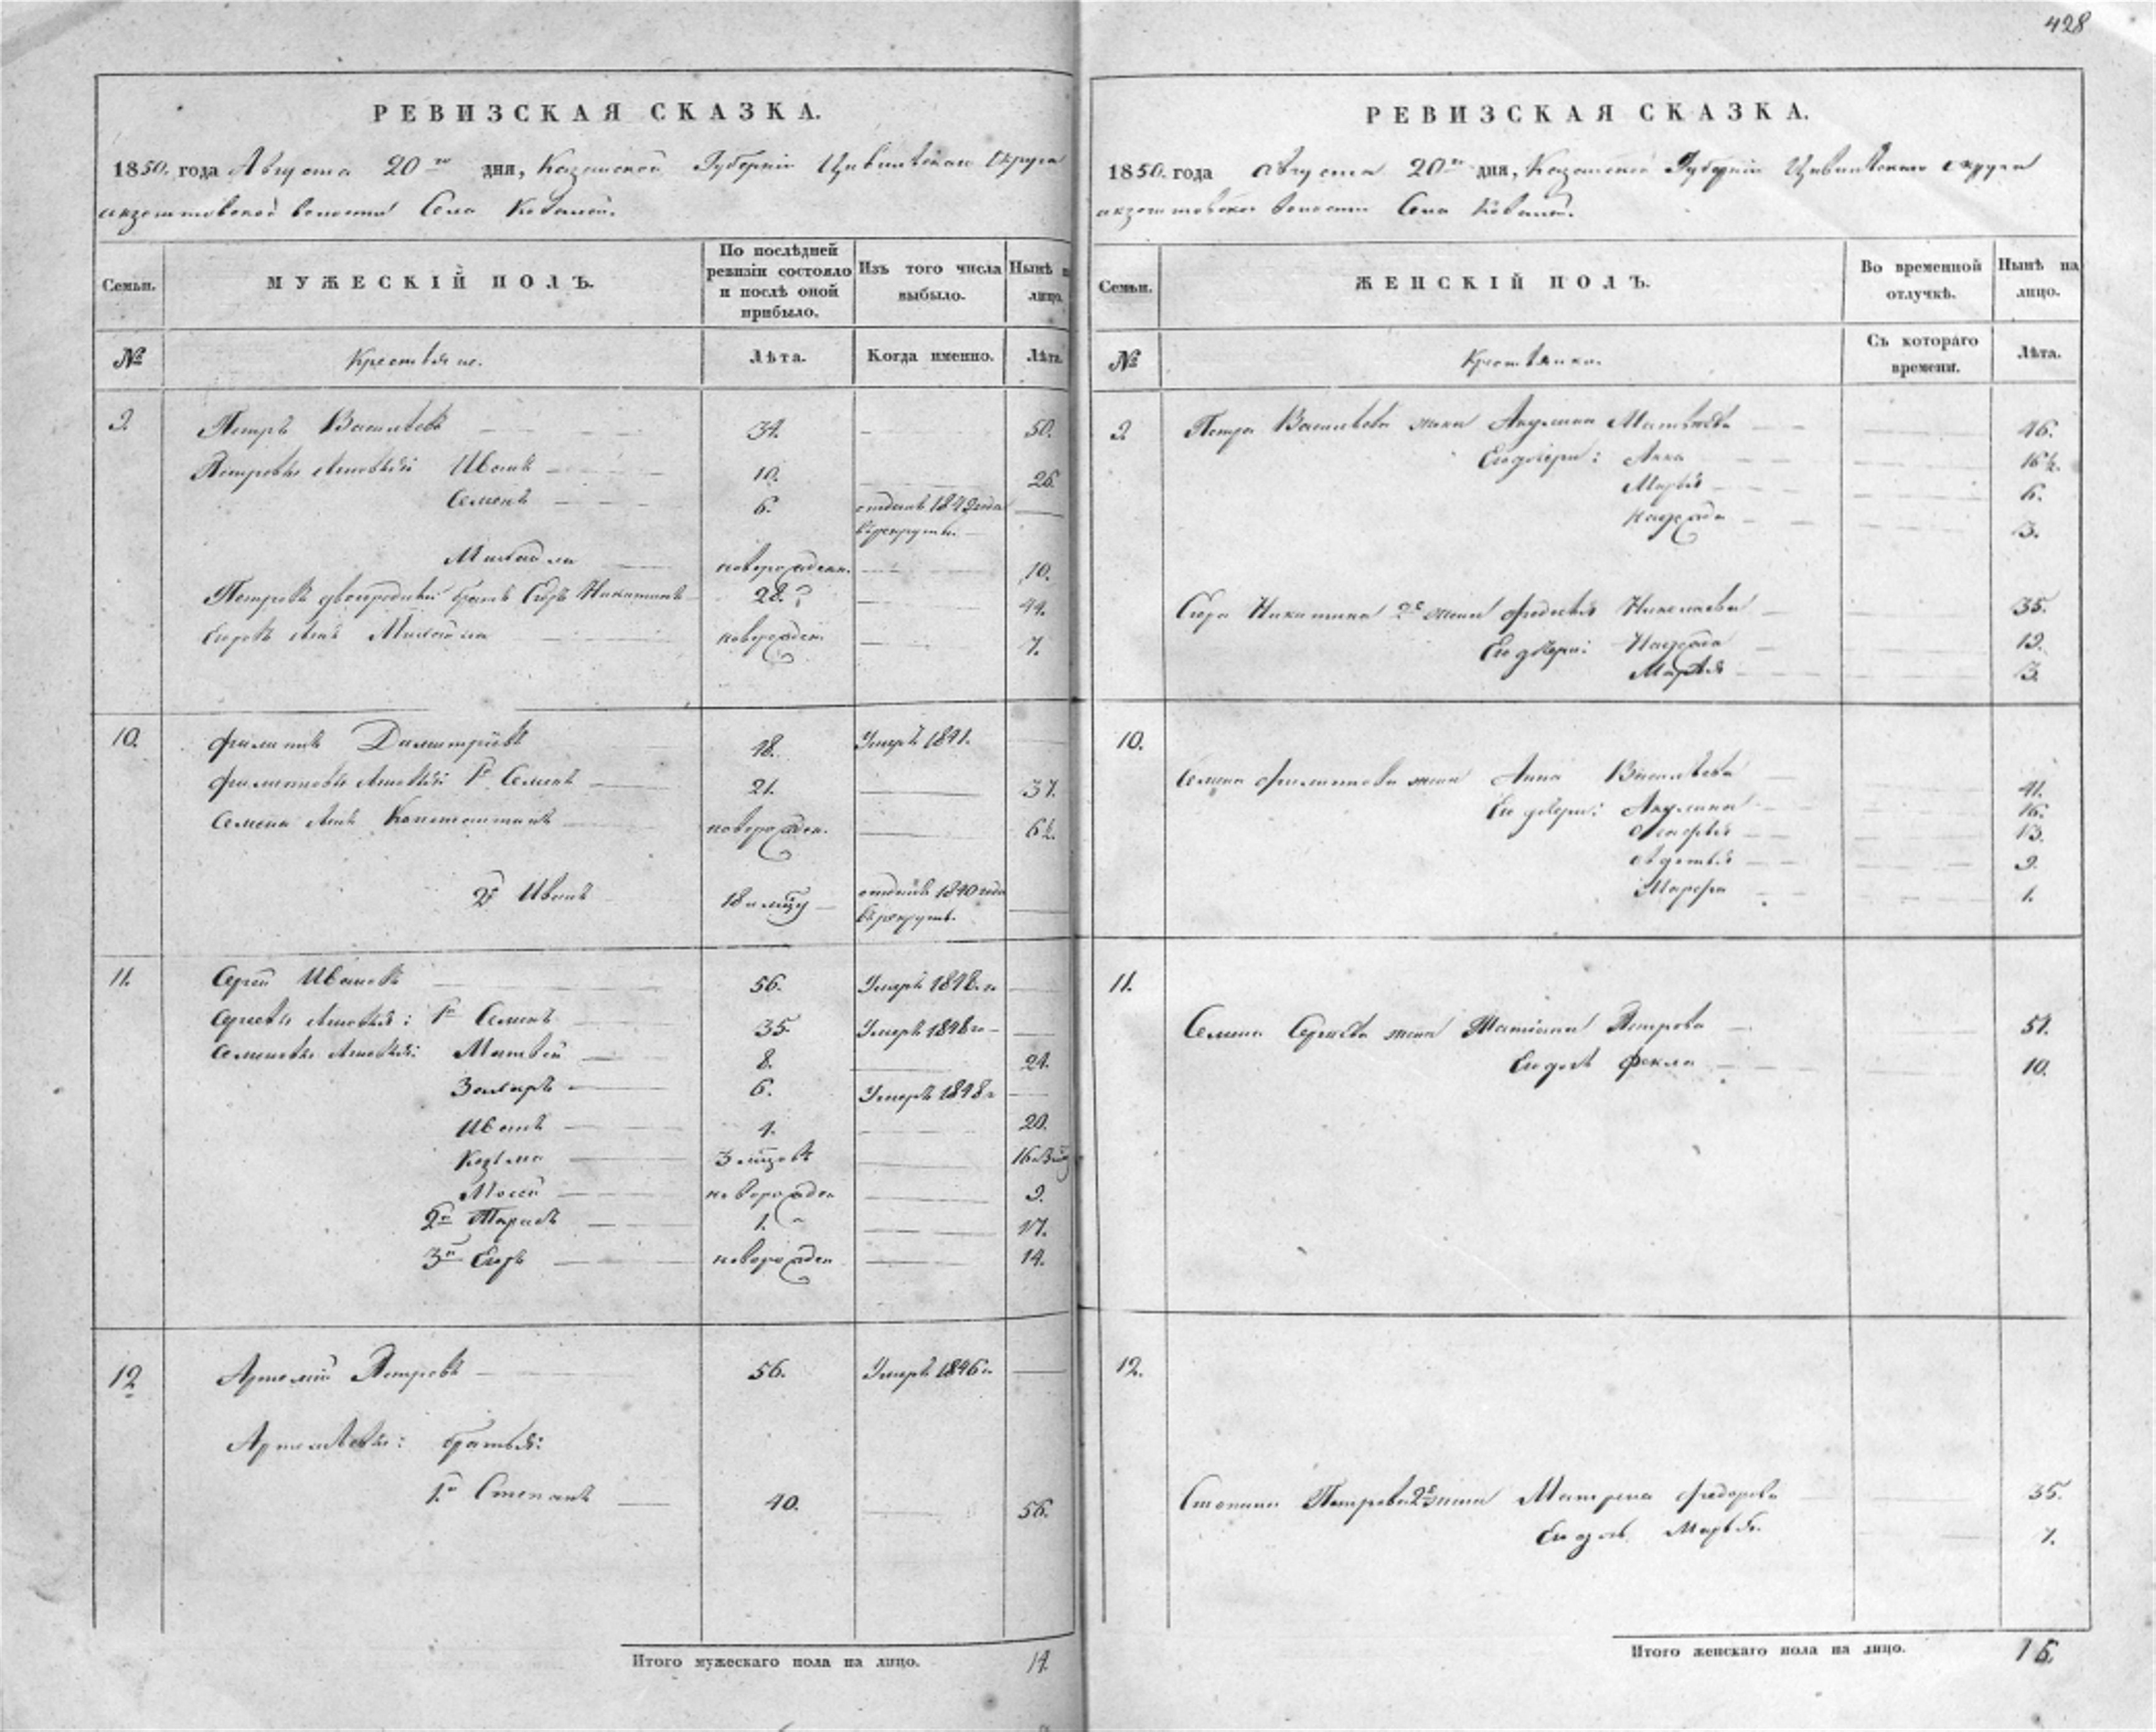 428
РЕВИЗСКАЯ СКАЗКА.
1850. года Августа 20го дня, Казанской Губерніи Цивильскаго Округа
волости Села Ковалей.
Семьи. МУЖЕСКІЙ ПОЛЪ. По послѣдней ревизіи состояло и послѣ оной прибыло. Изъ того числа выбыло. Нынѣ на лицо.
№ Крестьяне. Лѣта. Когда именно. Лѣта.
9. Петръ Васильевъ 34. — 50.
Петровы сыновья: Иванъ 10. 26.
Семенъ 6. отданъ 1842 года
въ рекруты.
Михайла новорожден. 10.
Петровъ двоюродный братъ Егоръ Никитинъ 28. 44.
Егоровъ сынъ Михайла новорожден. 7.
10. Филипъ Димитріевъ 48. Умеръ 1841.
Филиповы сыновья: 1й Семенъ 21. 37.
Семена сынъ Константинъ новорожден. 6½.
2й Иванъ 18 отданъ 1840 года
въ рекруты.
11. Сергѣй Ивановъ 56. Умеръ 1848. г.
Сергѣевы сыновья: 1й Семенъ 35. Умеръ 1848 г.
Семеновы сыновья: Матвѣй 8. 24.
Захаръ 6. Умеръ 1848 г.
Иванъ 4. 20.
Козьма 3 мѣсяцовъ 16
Мосей новорожден 9.
2й Тарасъ 1. 17.
3й Егоръ новорожден 14.
12 Артемій Петровъ 56. Умеръ 1846 г.
Артемьевы: братья:
1й Степанъ 40. 56.
Итого мужескаго пола на лицо. 14.
РЕВИЗСКАЯ СКАЗКА.
1850. года августа 20го дня, Казанской Губерніи Цивильскаго округа
волости Села Ковалей.
Семьи. ЖЕНСКІЙ ПОЛЪ. Во временной отлучкѣ. Нынѣ на лицо.
№ Крестьянки. Съ котораго времени. Лѣта.
9. Петра Васильева жена Акулина Матвѣева 46.
Его дочери: Анна 16½.
Марья 6.
Надежда 3.
Егора Никитина 2я жена Федосья Николаева 35.
Его дочери: Надежда 12.
Марья 3.
10.
Семена Филипова жена Анна Васильева 41.
Его дочери: Акулина 16.
Агафья 13.
Авдотья 9.
Марфа 1.
11.
Семена Сергѣева жена Татіана Петрова 51.
Его дочь Фекла 10.
12.
Степана Петрова 2я жена Матрена Федорова 35.
Его дочь Марья. 7.
Итого женскаго пола на лицо. 15.